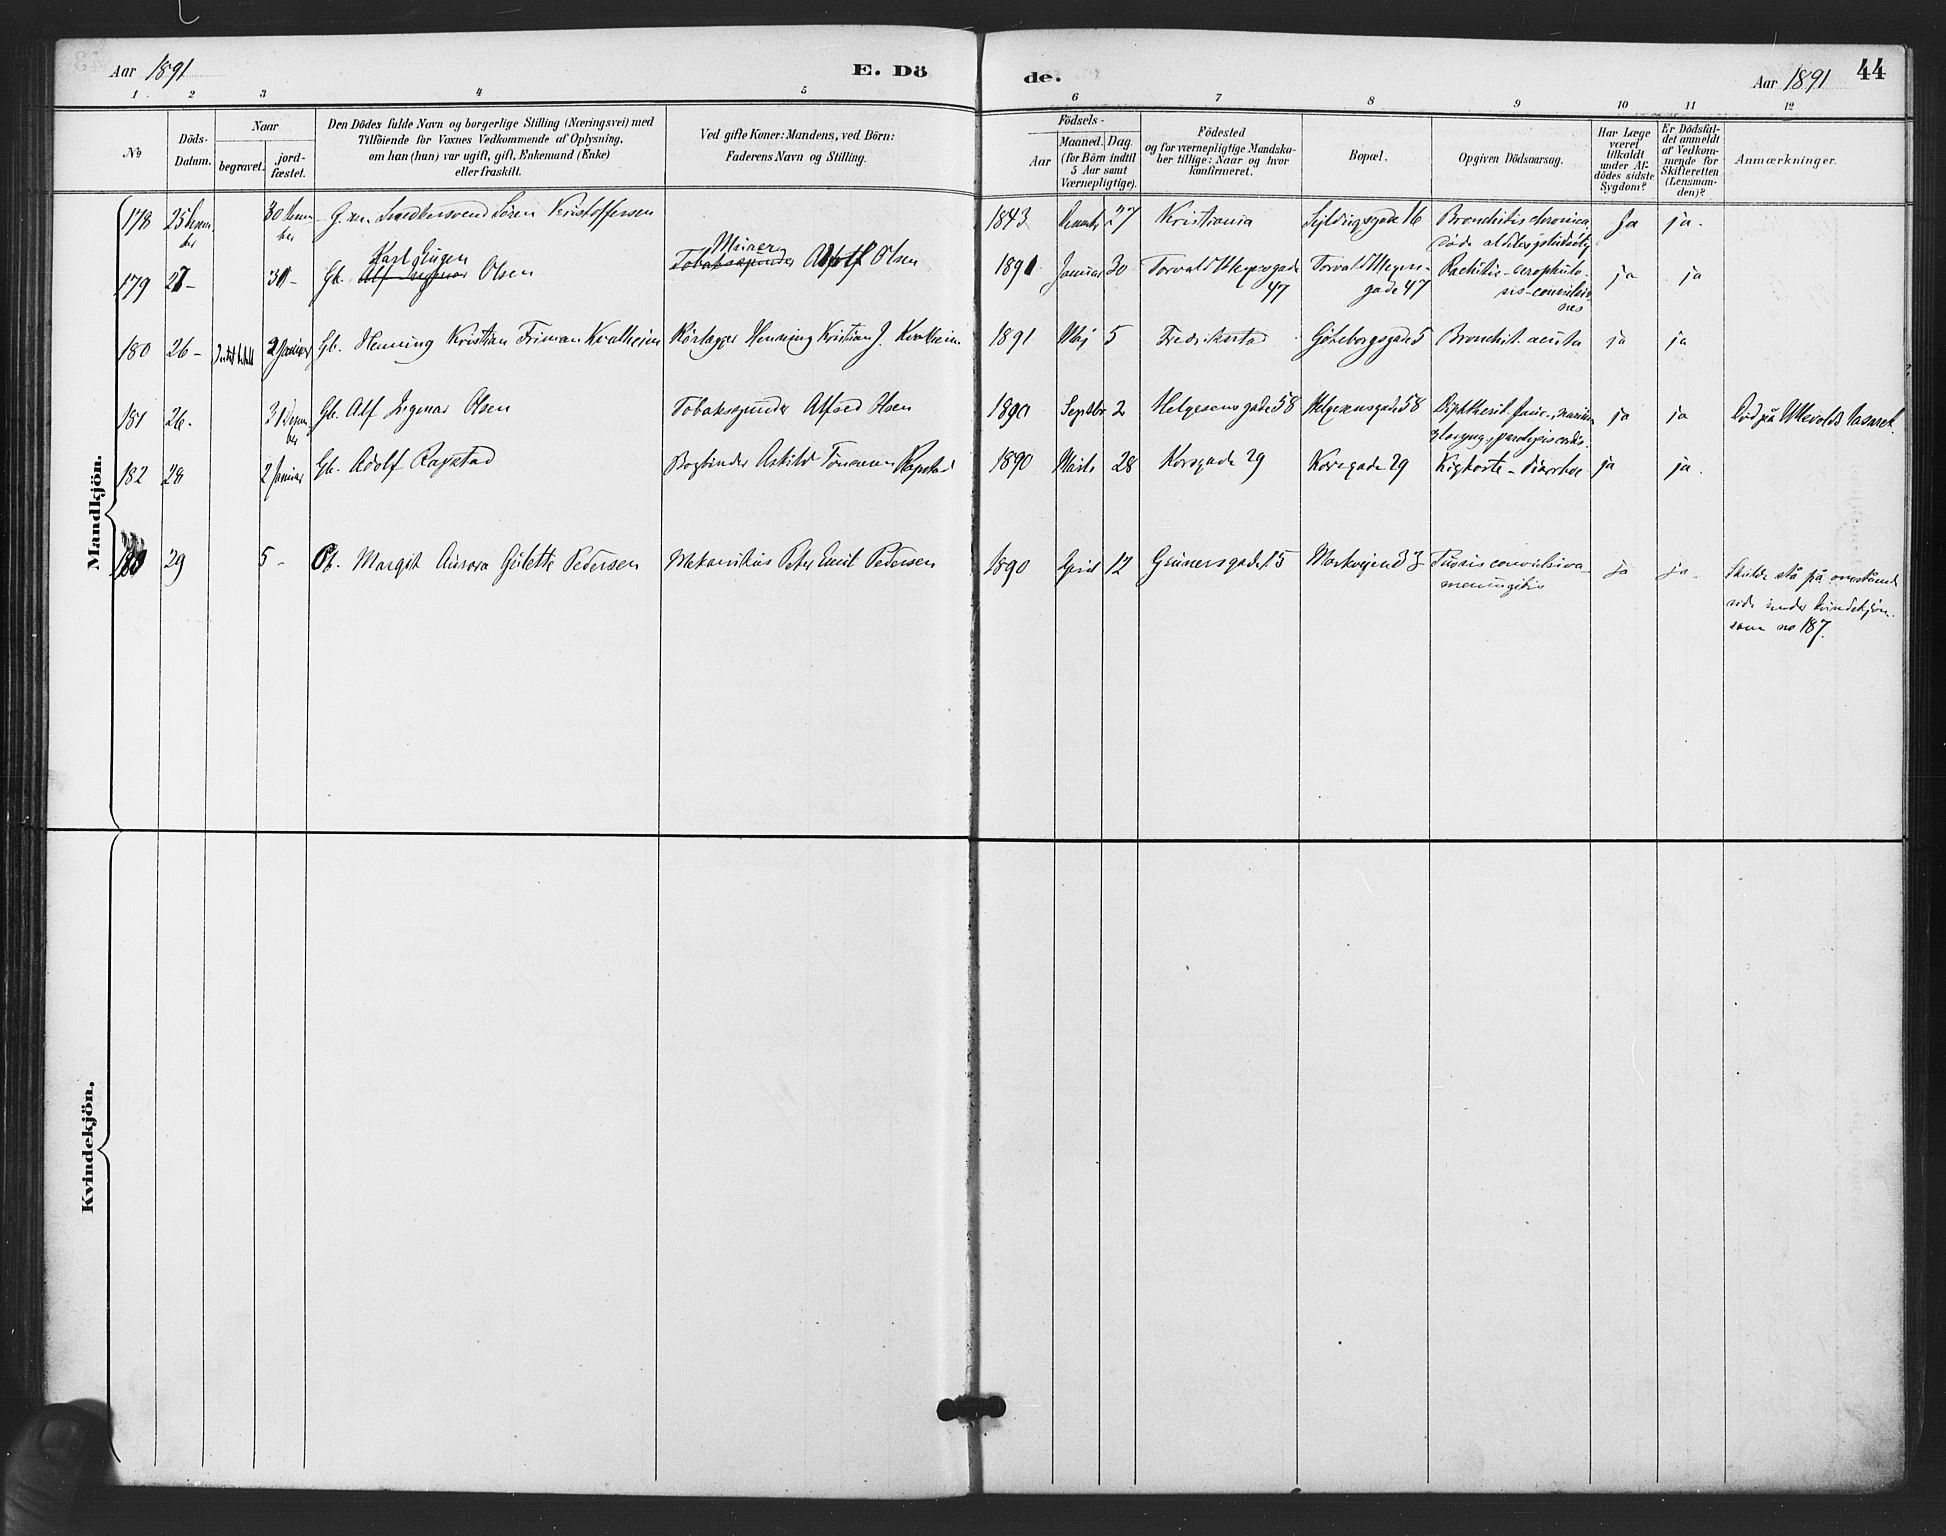 Aar 1891 E. Dö de. Aar 1891 44
1 2 3 4 5 6 7 8 9 10 11 12
No
Döds-Datum.
Naar
begravet.
jord-fæstet.
Den Dödes fulde Navn og borgerlige Stilling (Næringsvei) med
Tilföiende for Voxnes Vedkommende af Oplysning,
om han (hun) var ugift, gift, Enkemand (Enke)
eller fraskilt.
Ved gifte Koner: Mandens, ved Börn:
Faderens Navn og Stilling.
Födsels-
Aar
Maaned.
Dag.
(for Börn indtil
5 Aar samt
Værnepligtige).
Födested
og for værnepligtige Mandska-
ber tillige: Naar og hvor
konfirmeret.
Bopæl.
Opgiven Dödsaarsag.
Har Læge
været
tilkaldt
under Af-
dödes sidste
Sygdom?
Er Dödsfal-
det anmeldt
af Vedkom-
mende for
Skifteretten
(Lensman-
den)?
Anmærkninger.
Mandkjön.
178 25 30 G.m. Snedkersvend Sören Kristoffersen 1843 27 Kristiania 16 Bronchitis chronica Ja ja.
Karl Eugen Murer
179 27- 30- Gb. Alf Ingmar Olsen Tobaksspinder Adolf Olsen 1891 Januar 30 Torvald Meyersgade Torvald Meyers- Rachitis - ja ja
47 gade 47
180 26- 2 Januar Gb. Henning Kristian Friman Kvalheim Rörlægger Henning Kristian J. Kvalheim 1891 Maj 5 Fredrikstad Göteborgsgade 5 Bronchit. acuta ja ja
181 26. 31 Gb. Alf Ingmar Olsen Tobaksspinder Alfred Olsen 1890 Septbr 2 Helgesensgade 58 Helgesensgade 58 Diphtherit. ja ja Död på Ullevolds lasaret.
paralysis cordis.
182 28 2 Januar Gb. Adolf Rapstad Bogbinder Rapstad 1890 Marts 28 Korsgade 29 Korsgade 29 Kighoste - diarrhoe ja ja.
29 5 - Pb. Margit Aurora Pedersen Peter Emil Pedersen 1890 April 12 Grünersgade 15 Markvejen 33 Tussis convulsiva- ja ja- Skulde stå på
meningitis
side under kvindekjön
som no 187.
Kvindekjön.